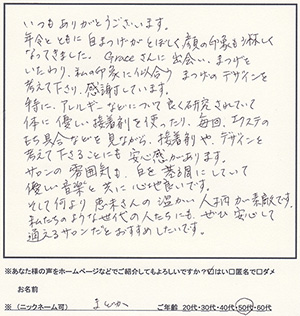 いつもありがとうございます。
年令とともに自まつげがとぼしく顔の印象も淋しく
なってきました。Graceさんに出会い、まつげを
いたわり、私の印象に似合うまつ毛のデザインを
考えて下さり、感謝しています。
特に、アレルギーなどについて良く研究されていて
体に優しい接着剤を使ったり、毎回、エクステの
もち具合などを見ながら、接着剤や、デザインを
考えて下さることにも安心感があります。
サロンの雰囲気も、白を基調にしていて
優しい音楽と共に心地良いです。
そして何より恵未さんの温かい人柄が素敵です。
私たちのような世代の人たちにも、ぜひ安心して
通えるサロンだとおすすめしたいです。
※あなた様の声をホームページなどでご紹介してもよろしいですか?☑はい□匿名で□ダメ
お名前
※(ニックネーム可)
ご年齢 20代・30代・40代・50代・60代